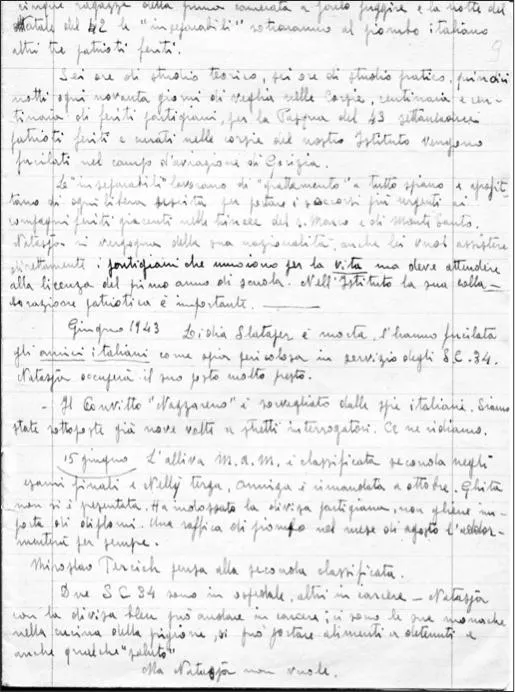 cinque ragazze della prima camerata a farlo fuggire e la notte del
Natale del 42 le "inseparabili" sottraranno al piombo italiano
altri tre patrioti feriti.
9
Sei ore di studio teorico, sei ore di studio pratico, quindici
notti ogni novanta giorni di veglia nelle corsie, centinaia e cen-
tinaia di feriti partigiani, per la Pasqua del 43 settantasei
patrioti feriti e curati nelle corsie del nostro Istituto vengono
fucilati nel campo d'aviazione di Gorizia.
Le "inseparabili" lavorano di "grattamento" a tutto spiano e aprofit-
tano di ogni libera uscita per portare i soccorsi più urgenti ai
compagni feriti giacenti nelle trincee del S. Marco e di Monte Santo.
Natasja si vergogna della sua nazionalità, anche lei vuol assistere
direttamente i partigiani che muoiono per la vita ma deve attendere
alla licenza del primo anno di scuola. Nell'Istituto la sua colla-
borazione patriotica è importante.
Giugno 1943 Lidia Slataper è morta, l'hanno fucilata
gli amici italiani come spia pericolosa in servizio degli S.C. 34.
Natasja occuperà il suo posto molto presto.
- Il Convitto "Nazzareno" è sorvegliato dalle spie italiane. Siamo
state sottoposte già nove volte a stretti interrogatori. Ce ne ridiamo.
15 giugno L'alliva M.d.M. è classificata seconda negli
esami finali e Nelly terza, amniza è rimandata a ottobre. Ghita
non si è presentata. Ha indossato la divisa partigiana, non gliene im-
porta di diplomi. Una raffica di piombo nel mese di agosto l'addor-
mentirà per sempre.
Miroslav Tercich pensa alla seconda classificata.
Due S.C. 34 sono in ospedale, altri in carcere - Natasja
con la divisa bleu può andare in carcere; ci sono le sue monache
nella cucina della prigione, si può portare alimenti a detenuti e
anche qualche "saluto"
Ma Natasja non vuole.